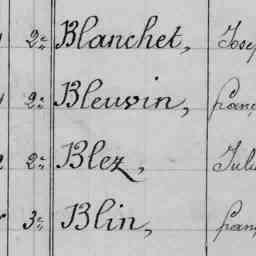 2e Blanchet, Jose
2e Bleuvin, franç
2e Blez, Juli
3e Blin, franç